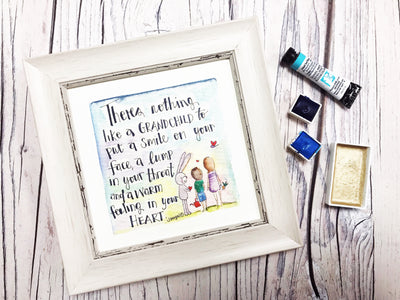 Theres nothing
like a GRANDCHILD to
put a smile on your
face, a lump
in your throat
and a WARM
feeling in your
HEART